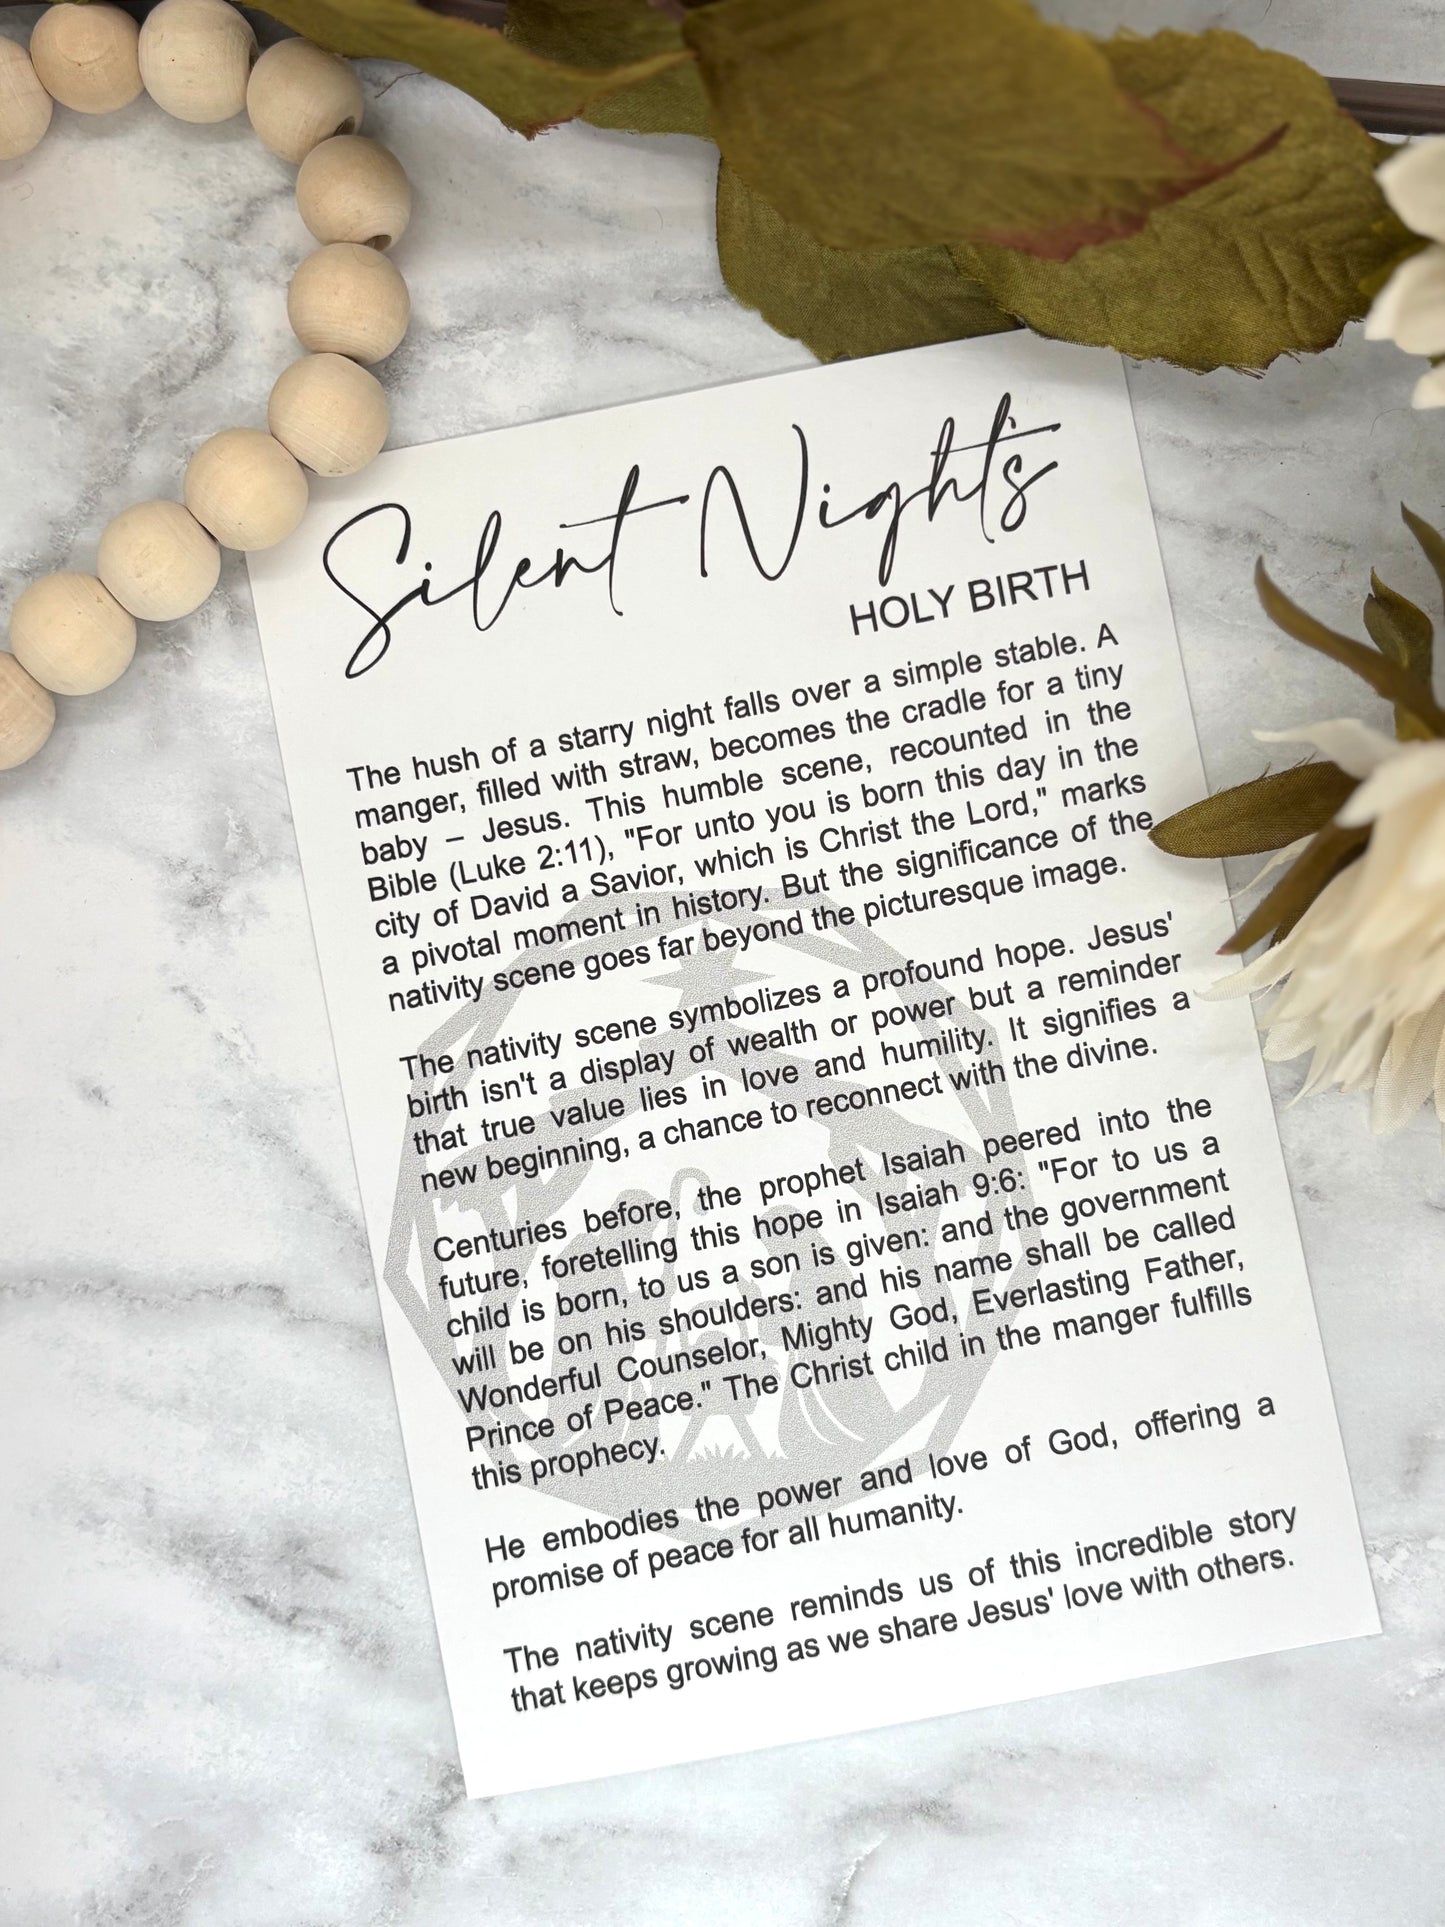 Silent Night's
HOLY BIRTH
The hush of a starry night falls over a simple stable. A
manger, filled with straw, becomes the cradle for a tiny
baby – Jesus. This humble scene, recounted in the
Bible (Luke 2:11), "For unto you is born this day in the
city of David a Savior, which is Christ the Lord," marks
a pivotal moment in history. But the significance of the
nativity scene goes far beyond the picturesque image.
The nativity scene symbolizes a profound hope. Jesus'
birth isn't a display of wealth or power but a reminder
that true value lies in love and humility. It signifies a
new beginning, a chance to reconnect with the divine.
Centuries before, the prophet Isaiah peered into the
future, foretelling this hope in Isaiah 9:6: "For to us a
child is born, to us a son is given: and the government
will be on his shoulders: and his name shall be called
Wonderful Counselor, Mighty God, Everlasting Father,
Prince of Peace." The Christ child in the manger fulfills
this prophecy.
He embodies the power and love of God, offering a
promise of peace for all humanity.
The nativity scene reminds us of this incredible story
that keeps growing as we share Jesus' love with others.